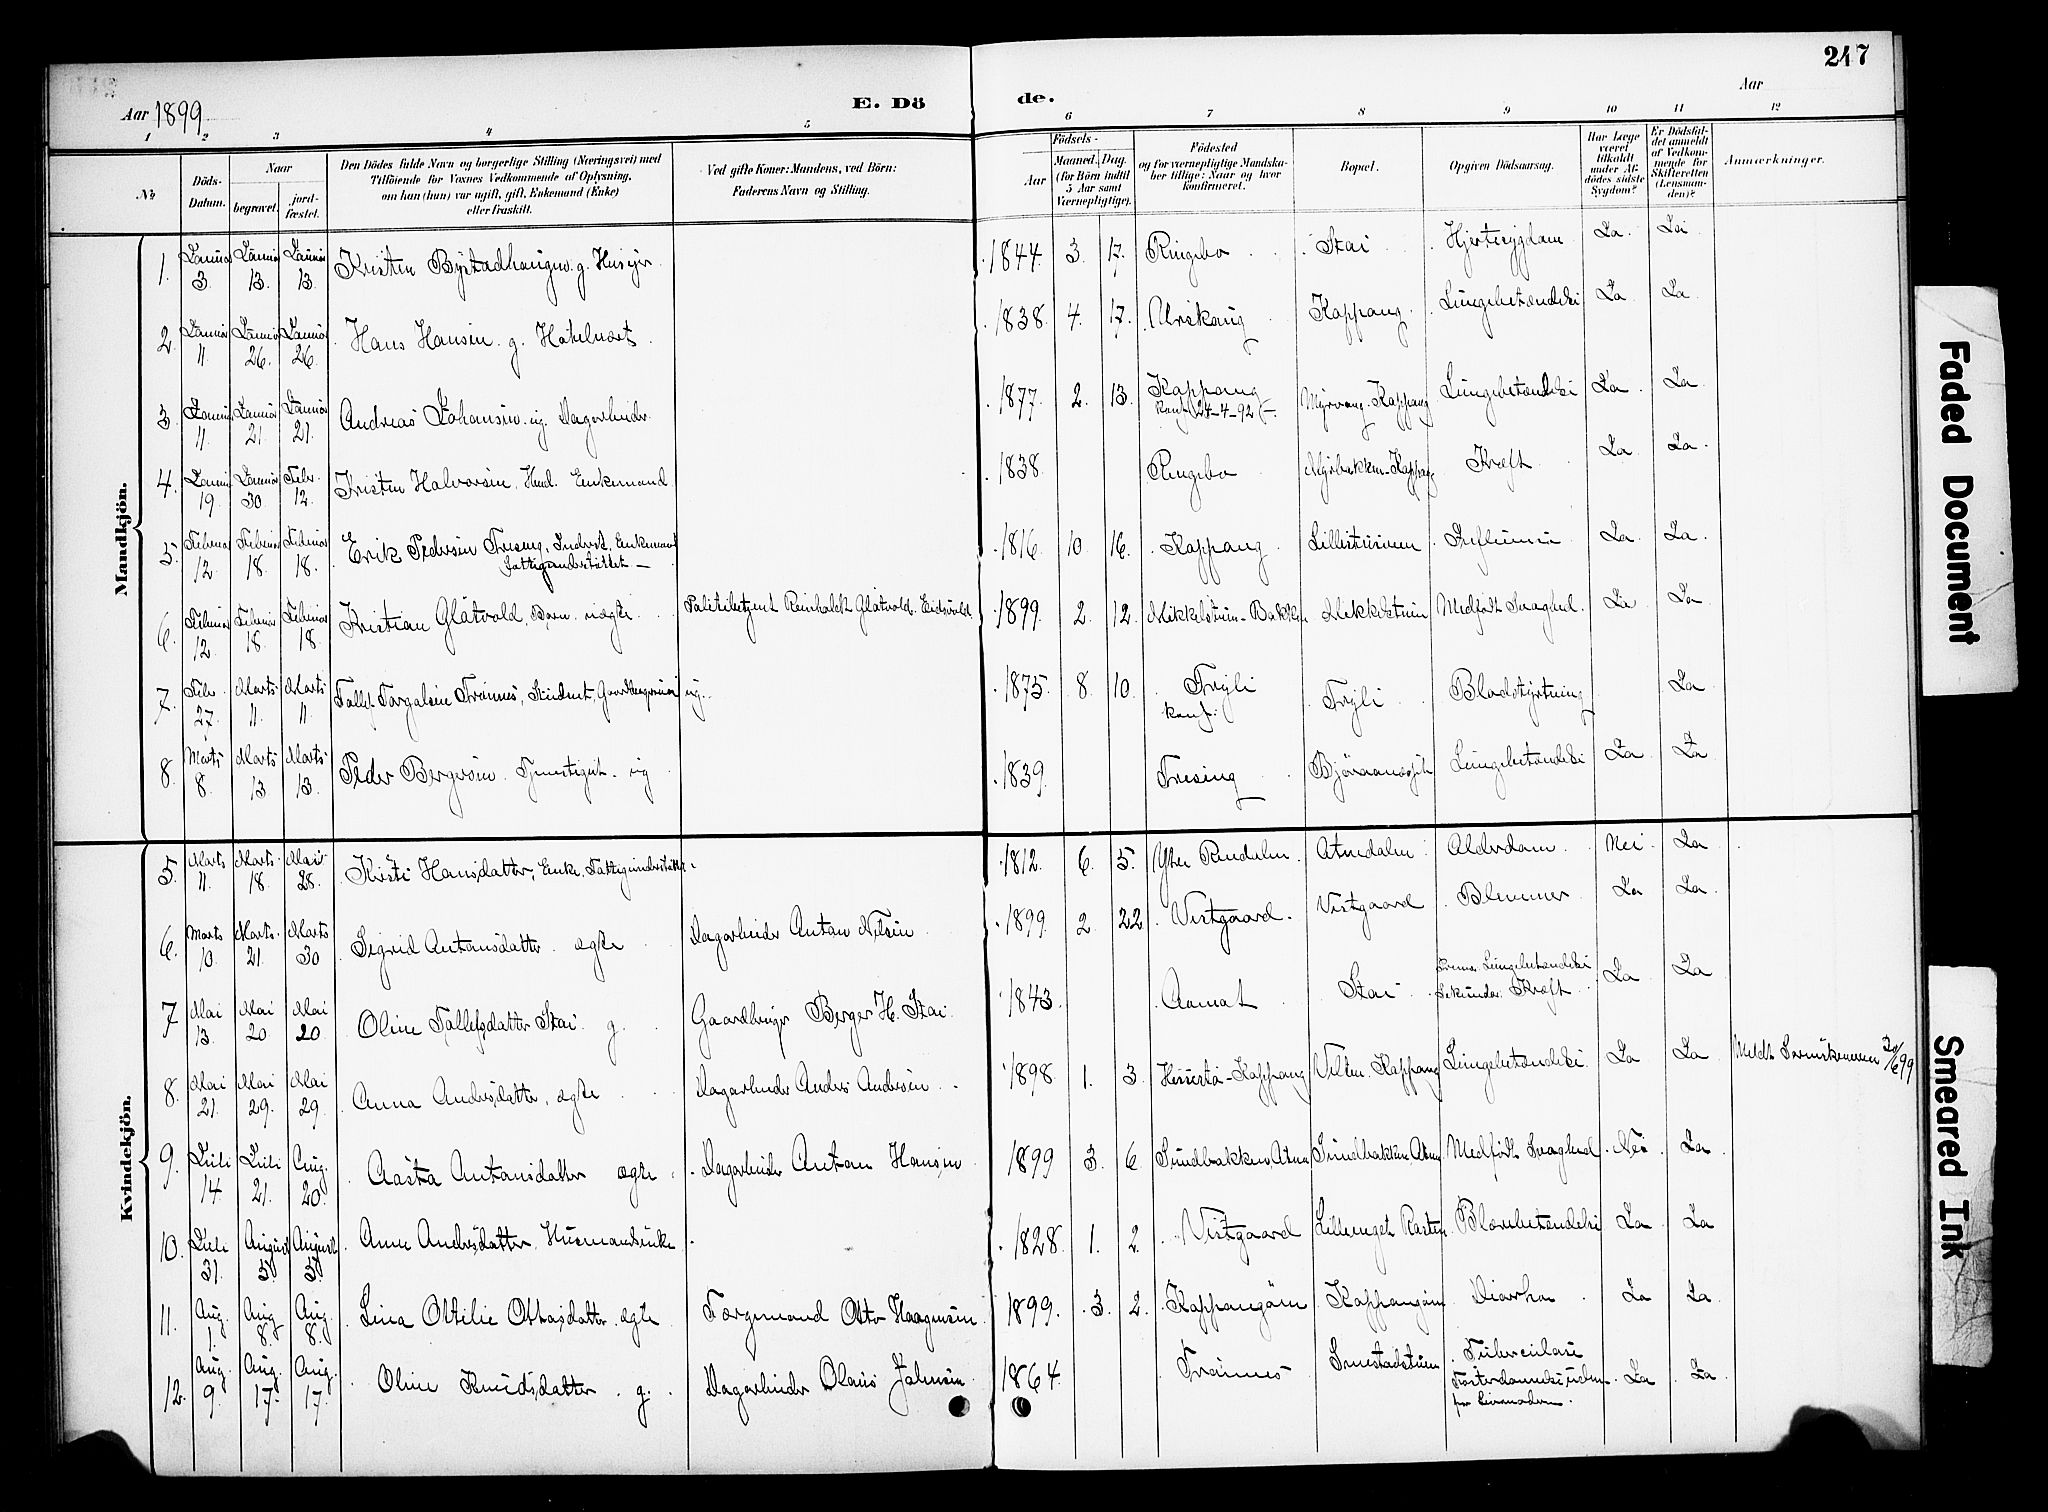 247
Aar 1899
E. Dö
de.
Aar
1 2 3 4 5 6 7 8 9 10 11 12
No
Döds-Datum.
Naar
begravet.
jord-fæstet.
Den Dödes fulde Navn og borgerlige Stilling (Næringsvei) med
Tilföiende for Voxnes Vedkommende af Oplysning,
om han (hun) var ugift, gift, Enkemand (Enke)
eller fraskilt.
Ved gifte Koner: Mandens, ved Börn:
Faderens Navn og Stilling.
Aar
Födsels-
Maaned. Dag.
(for Börn indtil
5 Aar samt
Værnepligtige).
Födested
og for værnepligtige Mandska-
ber tillige: Naar og hvor
konfirmeret.
Bopæl.
Opgiven Dödsaarsag.
Har Læge
været
tilkaldt
under Af-
dödes sidste
Sygdom?
Er Dödsfal-
det anmeldt
af Vedkom-
mende for
Skifteretten
(Lensman-
den)?
Anmærkninger.
Mandkjön.
1. Januar 3. Januar 13. Januar 13. Kristen Bystadhaugen. g. 1844. 3. 17. Ringebo Stai Hjertesygdom Ja. Ja
2. Januar 11. Januar 26. Januar 26. Hans Hansen. g. Hotelvært. 1838. 4. 17. Koppang. Lungebetændelse Ja Ja
3. Januar 11. Januar 21. Januar 21. Andreas Johansen. ug. Dagarbeider 1877. 2. 13. Koppang konf. 24-4-92 Myrvang. Koppang Lungebetændelse Ja Ja
4. Januar 19. Januar 30. Febr. 12. Kristen Halvorsen. Enkemand 1838. Ringebo Koppang Kræft Ja Ja
5. Februar 12. Februar 18. Februar 18. Erik Pedersen Trøsing. Inderst. Enkemand fattigunderstöttet 1816. 10. 16. Koppang Lillestuen Influensa Ja Ja
6. Februar 12. Februar 18. Februar 18. Kristian Glatvold. Barn. uægte Politibetjent Reinholdt Glatvold. Eidsvold. 1899. 2. 12. Mikkelstuen-Bakken Mikkelstuen Medfödt Svaghed. Ja Ja
7. Febr. 27. Marts 11. Marts 11. Tollef Torgalsen Trønnes, Student, ug. 1875. 8. 10. Trysil konf. Trysil Blodstyrtning Ja
8. Marts 8. Marts 13 Marts 13. Peder Bergersen. Tjenestegut. ug 1839. Trøsing Lungebetændelse Ja Ja
Kvindekjön.
5. Marts 11. Marts 18. Mai 28. Kirsti Hansdatter, Enke. Fattigunderstöttet. 1812. 6. 5. Ytre Rendalen. Atnedalen Alderdom. Nei Ja
6. Marts 10. Marts 21. Marts 30 Sigrid Antonsdatter. ægte Dagarbeider Anton Nilsen. 1899. 2. 22 Vestgaard. Vestgaard Ja Ja
7 Mai 13. Mai 20 Mai 20 Oline Tollefsdatter Stai. g. Gaardbruger Berger H. Stai. 1843. Aamot Stai Lungebetændelse Sekundær. Kræft Ja Ja
8. Mai 21. Mai 29. Mai 29. Anna Andersdatter, ægte Dagarbeider Anders Andersen 1898 1. 3. Koppang Koppang Lungebetændelse. Ja Ja Meldt
9. Juli 14. Juli 21. Aug. 20. Aasta Antonsdatter ægte Dagarbeider Anton Hansen 1899 3. 6. Sundbakken, Atna Sundbakken, Atna Medfödt Svaghed. Nei Ja
10. Juli 31. August 5. August 5. Anne Andersdatter. Husmandsenke 1828. 1. 2. Vestgaard Blærebetændelse Ja Ja
11. Aug. 1. Aug 8. Aug 8. Lina Ottilie Ottosdatter. ægte Færgemand Otto Haagensen 1899. 3. 2. Koppangøen Koppangøen Diarrhø Ja Ja
12. Aug. 9. Aug. 17. Aug. 17. Oline Knudsdatter. g. Dagarbeider Olaus Johnsen. 1864 Trønnes Smestadstuen Tuberculose Ja. Ja
Faded Document
Smeared Ink